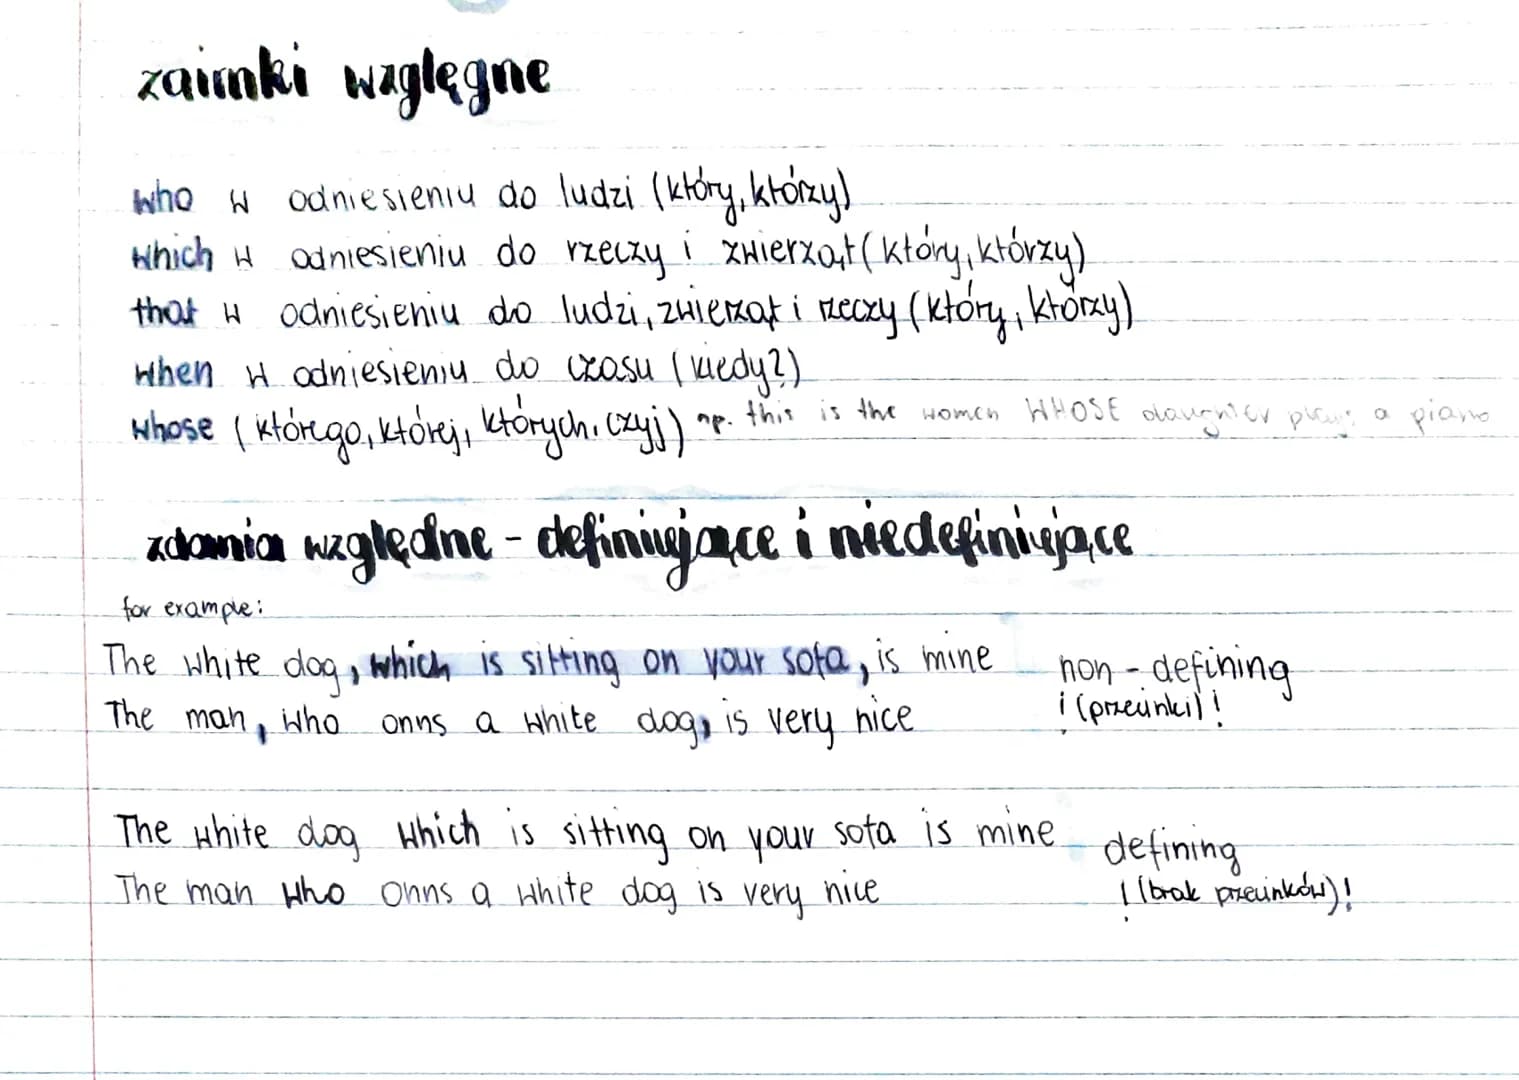 zaimki wzglęgne
who w odniesieniu do ludzi (który, którzy)
which w odniesieniu do rzeczy i zwierząt (który, którzy)
that w odniesieniu do ludzi, zwierząt i rzeczy (który, którzy)
when w odniesieniu do czasu (kiedy?)
whose (którego, której, których, czyj) np. this is the women WHOSE daughter plays a piano
zdania względne - definiujące i niedefiniujące
for example:
The white dog, which is sitting on your sofa, is mine non-defining
The man, who owns a white dog, is very nice ! (przecinki) !
The white dog which is sitting on your sofa is mine defining
The man who owns a white dog is very nice ! (brak przecinków) !